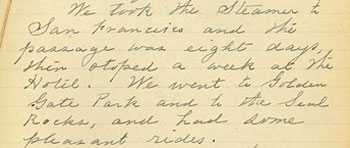 We took the Steamer to
San Francisco and the
passage was eight days,
then stoped a week at the
Hotel. We went to Golden
Gate Park and to the Seal
Rocks, and had some
pleasant rides.